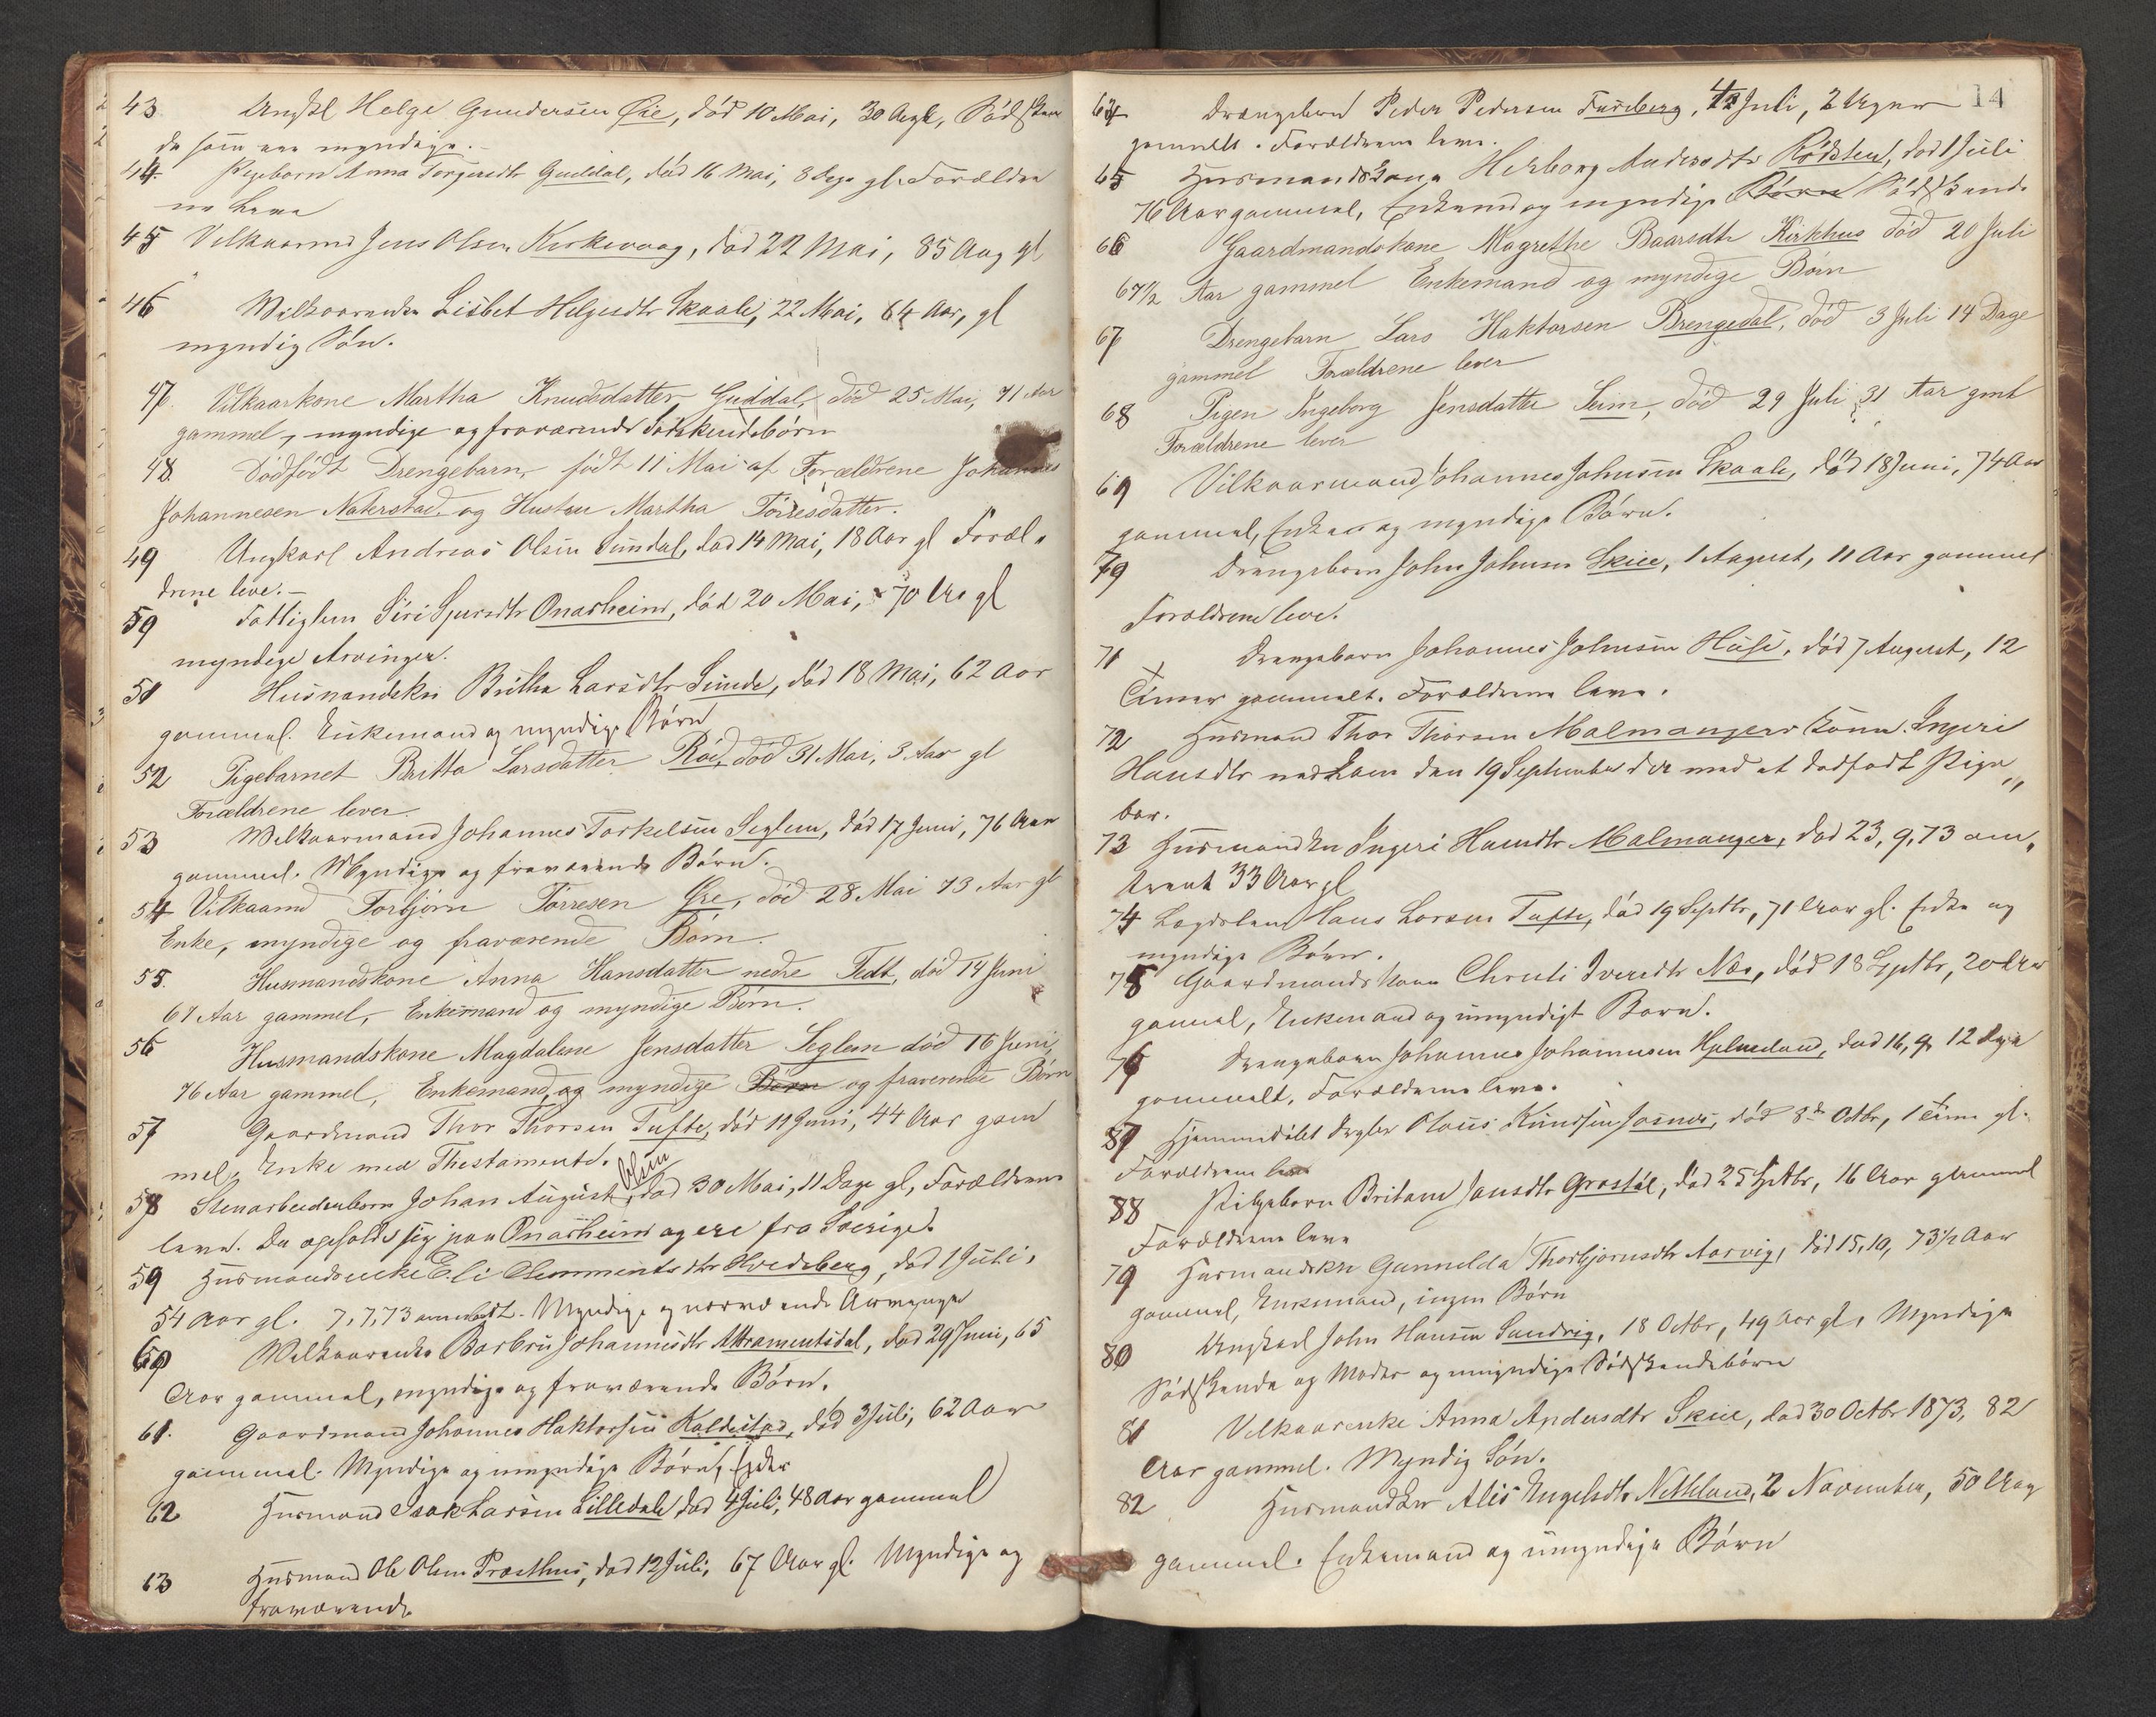 43 Ungkl Helge Gundersen Øie, död 10 Mai, 30 Aar gl, Södsken
de som ere myndige.
44. Pigebarn Anna Torgersdtr Guddal, död 16 Mai, 8 Dage gl. Forældre
ne leve
45 Vilkaarmd Jens Olsen Kirkevaag, död 22 Mai, 85 Aar gl
46 Wilkaarenke Lisbet Helgesdtr Skaale, 22 Mai, 64 Aar, gl
myndig Sön.
47. Vilkaarkone Martha Knudsdatter Guddal, död 25 Mai, 71 Aar
gammel, myndige og fraværende Södskendebörn
48. Dödfödt Drengebarn, födt 11 Mai af Forældrene Johannes
Johannesen Naterstad og Hustru Martha Törresdatter.
49 Ungkarl Andreas Olsen Sundal, död 14 Mai, 18 Aar gl Foræl-
drene leve.
50 Fattiglem Siri Sjursdtr Onarheim, död 20 Mai, 70 Aar gl
myndige Arvinger.
51 Husmandskn Britha Larsdtr Sunde, död 18 Mai, 62 Aar
gammel. Enkemand og myndige Börn
52 Pigebarnet Britta Larsdatter Röd, död 31 Mai, 3 Aar gl
Forældrene lever.
53 Wilkaarmand Johannes Torkelsen Seglem, död 17 Juni, 76 Aar
gammel. Myndige og fraværende Börn.
54 Vilkaarmd Torbjörn Törresen Øie, död 28 Mai 73 Aar gl
Enke, myndige og fraværende Börn.
55. Husmandskone Anna Hansdatter nedre Tedt, död 14 Juni
67 Aar gammel, Enkemand og myndige Börn.
56 Husmandskone Magdalene Jensdatter Seglem död 16 Juni,
76 Aar gammel, Enkemand, og myndige Börn og fraverende Börn
57 Gaardmand Thor Thorsen Tufte, död 11 Juni, 44 Aar gam
mel, Enke med Thestamente.
58 Stenarbeiderbarn Johan August Olsen, död 30 Mai, 11 Dage gl, Forældrene
leve. De opholde sig paa Onarheim og ere fra Sverige.
59 Husmandsenke Eli Clemmentsdtr Hvedeberg, död 1 Juli,
54 Aar gl. 7, 7, 73 anmeldt. Myndige og nærværende Arvinger
60 Wilkaarenke Barbru Johannesdtr Attramentsdal, död 29 Juni, 65
Aar gammel, myndige og fraværende Börn.
61. Gaardmand Johannes Haktorsen Kaldestad, död 3 Juli, 62 Aar
gammel. Myndige og umyndige Börn, Enke
62 Husmand Isak Larsen Lilledale, död 4 Juli, 48 Aar gammel
63 Husmand Ole Olsen Præsthus, död 12 Juli, 67 Aar gl. Myndige og
fraværende
14
64 Drengebarn Peder Pedersen Fureberg, 4 Juli, 2 Uger
gammelt. Forældrene leve.
65 Husmandskone Herborg Andersdtr Rödsten, död 1 Juli
76 Aar gammel, Enkemand og myndige Börn Södskende
66 Gaardmandskone Magrethe Baarsdtr Kirkhus död 20 Juli
67 1/2 Aar gammel Enkemand og myndige Börn
67 Drengebarn Lars Haktorsen Brengedal, död 3 Juli 14 Dage
gammel Forældrene lever
68 Pigen Ingeborg Jensdatter Seim, död 29 Juli 31 Aar gmt
Forældrene lever
69 Vilkaarmand Johannes Johnsen Skaale, död 18 Juni, 74 Aar
gammel, Enke og myndige Börn.
70 Drengebarn John Johnsen Skeie, 1 August, 11 Aar gammel
Forældrene leve.
71 Drengebarn Johannes Johnsen Huse, död 7 August, 12
Timer gammelt. Forældrene leve.
72 Husmand Thor Thorsen Malmangers Kone Ingeri
Hansdtr nedkom den 19 September der med et dödfödt Pige
bar.
73 Husmandkn Ingeri Hansdtr Malmanger, död 23, 9, 73 om-
trent 33 Aar gl
74 Lægdslem Hans Larsen Tufte, död 19 Septbr, 71 Aar gl. Enke og
myndige Börn.
75 Gaardmandskone Christi Iversdtr Næs, död 18 Septbr, 20 Aar
gammel, Enkemand og umyndigt Barn.
76 Drengebarn Johannes Johannesen Hjelmeland, död 16, 9, 12 Dage
gammelt, Forældrene leve.
87 Hjemmedöbt Dreng Olaus Knudsen Josnæs, död 8de Octbr, 1 Time gl.
Forældrene leve
88 Pigebarn Britane Jansdtr Grostöl, död 25 Septbr, 16 Aar gammel
Forældrene leve
79 Husmandskn Gunnelda Thorbjornsdtr Aarvig, död 15, 10, 73 1/2 Aar
gammel, Enkemand, ingen Börn
80 Ungkarl John Hansen Sandvig, 18 Octbr, 49 Aar gl, Myndige
Södskende og Moder og umyndige Södskendebörn
81 Velkaarenke Anna Andersdtr Skeie, död 30 Octbr 1873, 82
Aar gammel. Myndig Sön.
82 Husmandskn Alis Engelsdtr Nethland, 2 November, 50 Aar
gammel. Enkemand og umyndige Börn